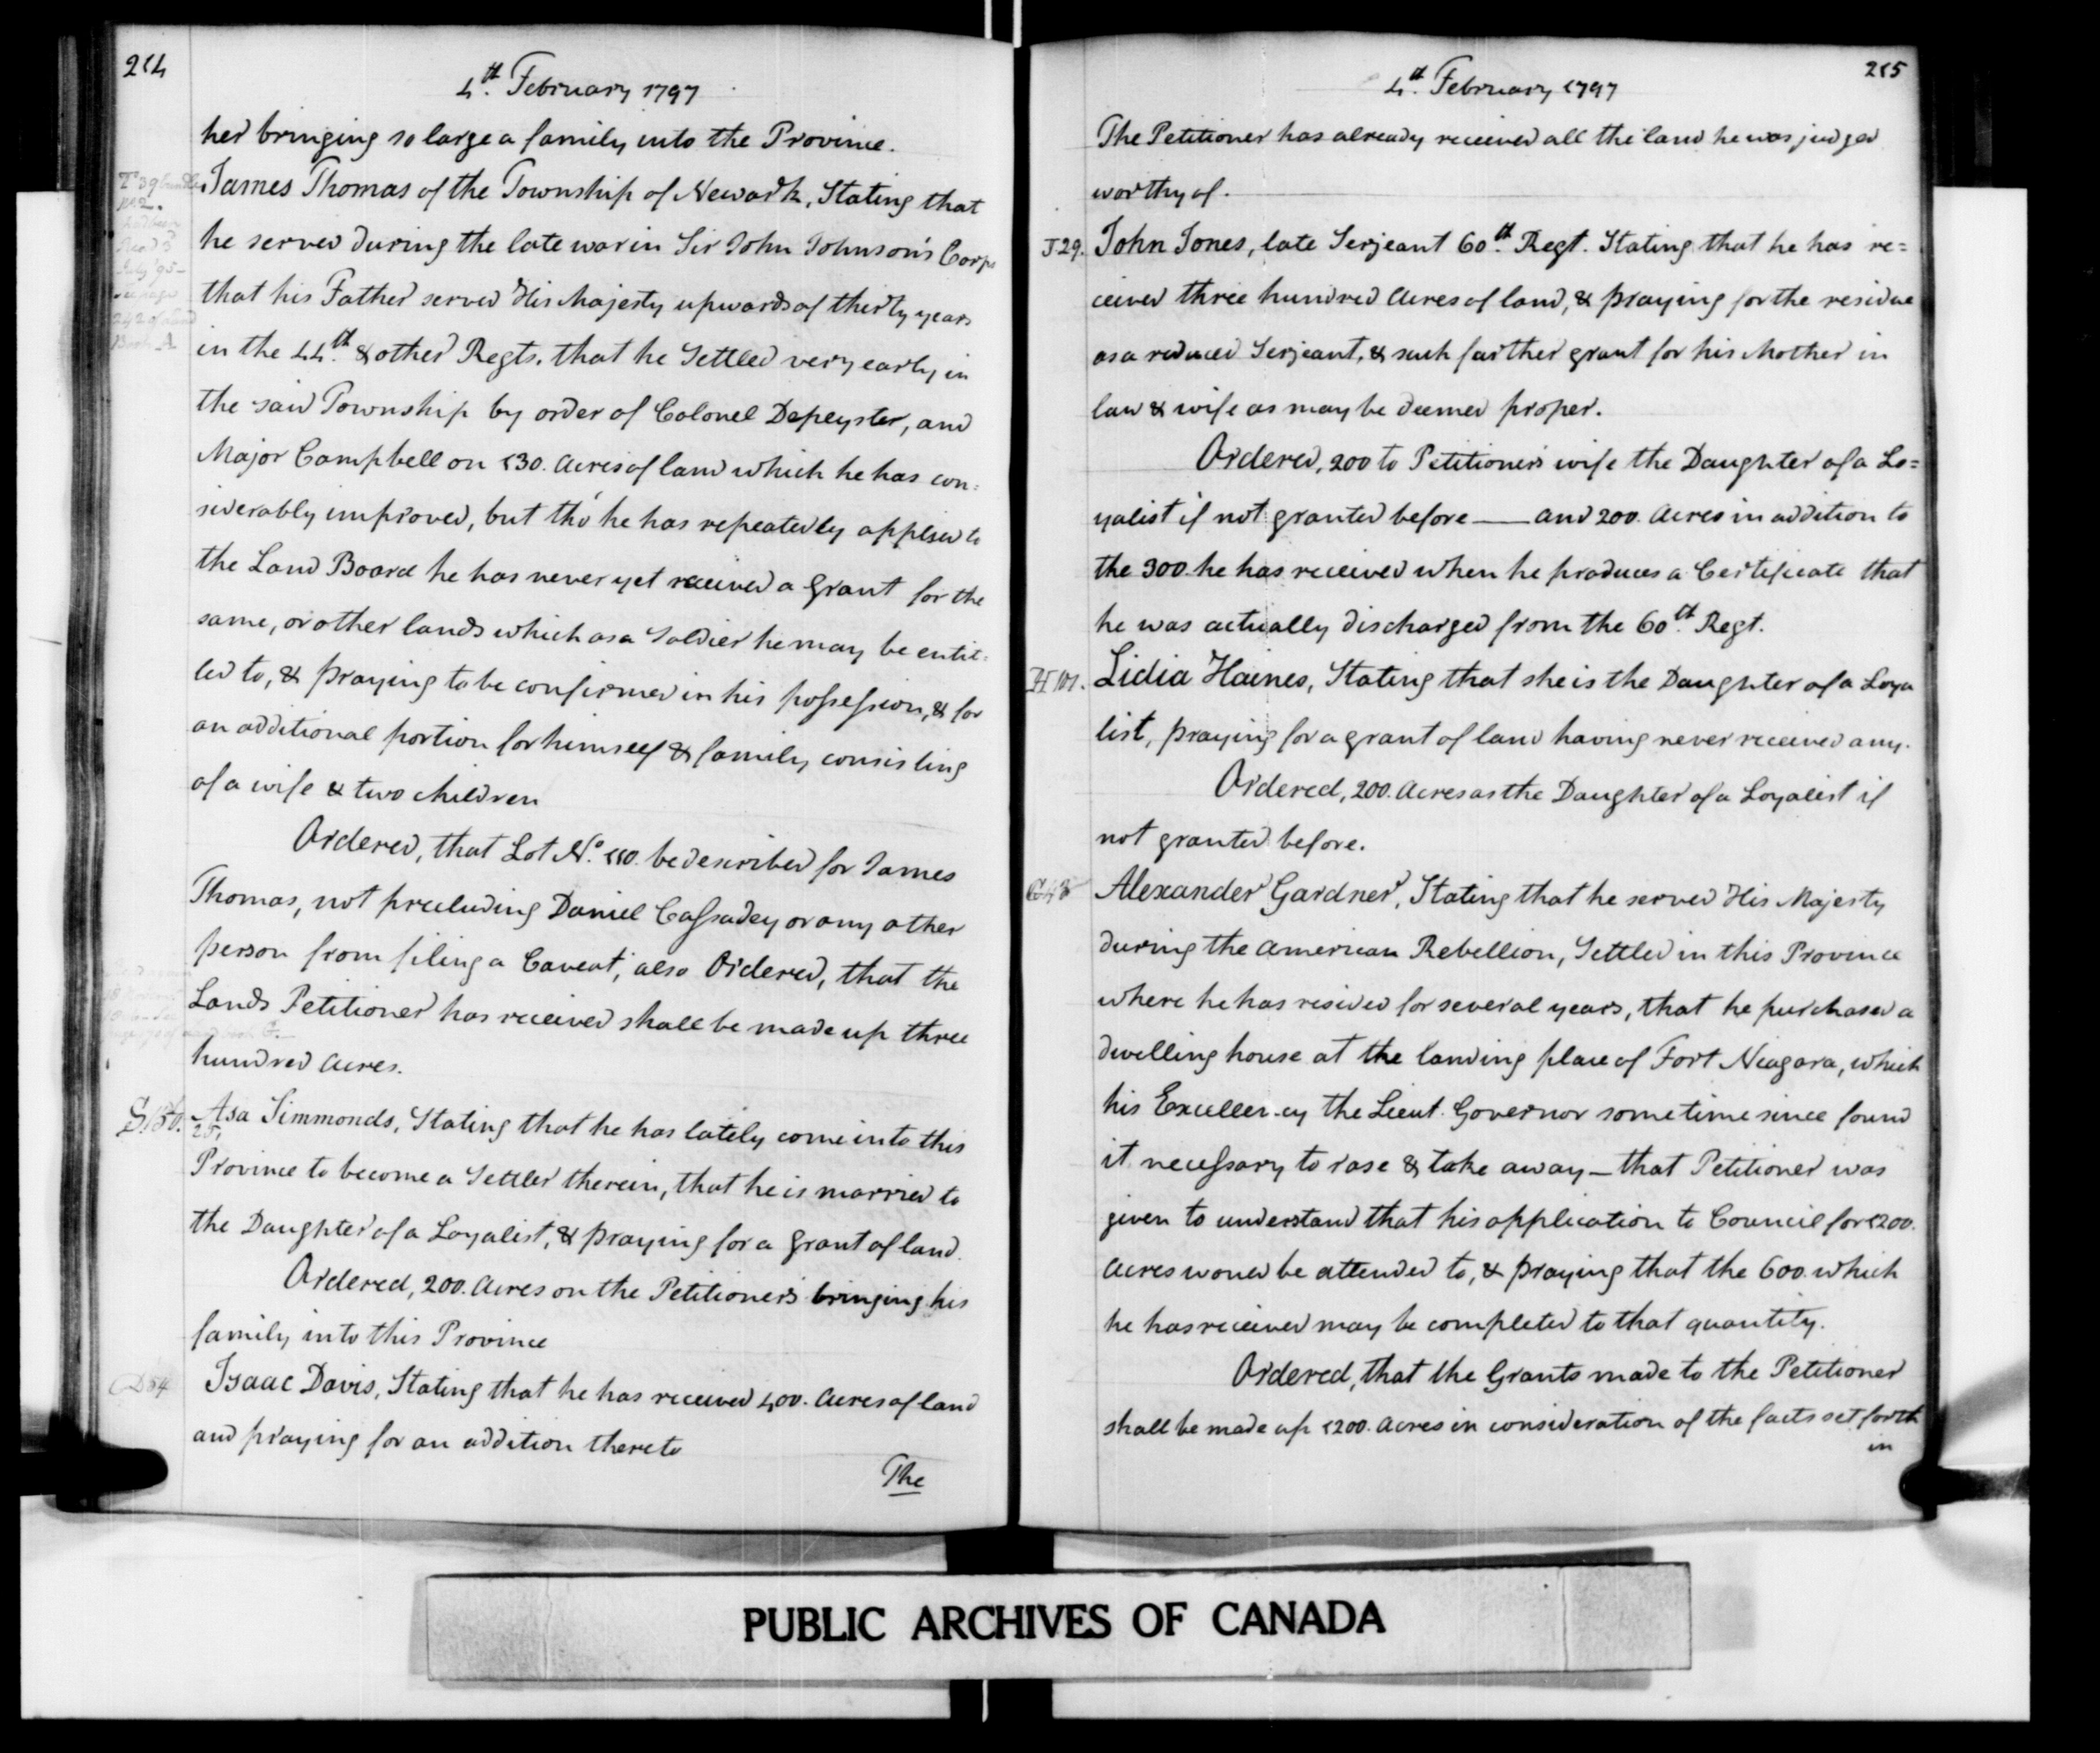 214
4th. February 1797
her bringing so large a family into the Province.
James Thomas of the Township of Newark, Stating that
he served during the late war in Sir John Johnson's Corps
that his Father served His Majesty upwards of thirty years
in the 44th. & other Regts. that he Settled very early in
the said Township by order of Colonel Depeyster, and
Major Campbell on 130. Acres of land which he has con=
siderably improved, but tho' he has repeatedly applied to
the Land Board he has never yet received a grant for the
same, or other lands which as a Soldier he may be entit=
led to, & praying to be confirmed in his possession, & for
an additional portion for himself & family consisting
of a wife & two children
Ordered, that Lot No. 110. be described for James
Thomas, not precluding Daniel Cassadey or any other
person from filing a Caveat; also Ordered, that the
Lands Petitioner has received shall be made up three
hundred Acres.
S150. Asa Simmonds, Stating that he has lately come into this
Province to become a Settler therein, that he is married to
the Daughter of a Loyalist, & praying for a grant of land.
Ordered, 200. Acres on the Petitioner's bringing his
family into this Province
D54 Isaac Davis, Stating that he has received 400. Acres of land
and praying for an addition thereto
The
215
4th. February 1797
The Petitioner has already received all the land he was judged
worthy of.
J29. John Jones, late Serjeant 60th. Regt. Stating that he has re=
ceived three hundred Acres of land, & praying for the residue
as a reduced Serjeant, & such farther grant for his Mother in
law & wife as may be deemed proper.
Ordered, 200 to Petitioner's wife the Daughter of a Lo=
yalist if not granted before — and 200. Acres in addition to
the 300. he has received when he produces a Certificate that
he was actually discharged from the 60th. Regt.
H101. Lidia Haines, Stating that she is the Daughter of a Loya
list, praying for a grant of land having never received any.
Ordered, 200. Acres as the Daughter of a Loyalist if
not granted before.
G48 Alexander Gardner, Stating that he served His Majesty
during the American Rebellion, Settled in this Province
where he has resided for several years, that he purchased a
dwelling house at the landing place of Fort Niagara, which
his Excellency the Lieut. Governor sometime since found
it necessary to rase & take away — that Petitioner was
given to understand that his application to Council for 1200.
Acres would be attended to, & praying that the 600. which
he has received may be completed to that quantity.
Ordered, that the Grants made to the Petitioner
shall be made up 1200. Acres in consideration of the facts set forth
in
PUBLIC ARCHIVES OF CANADA